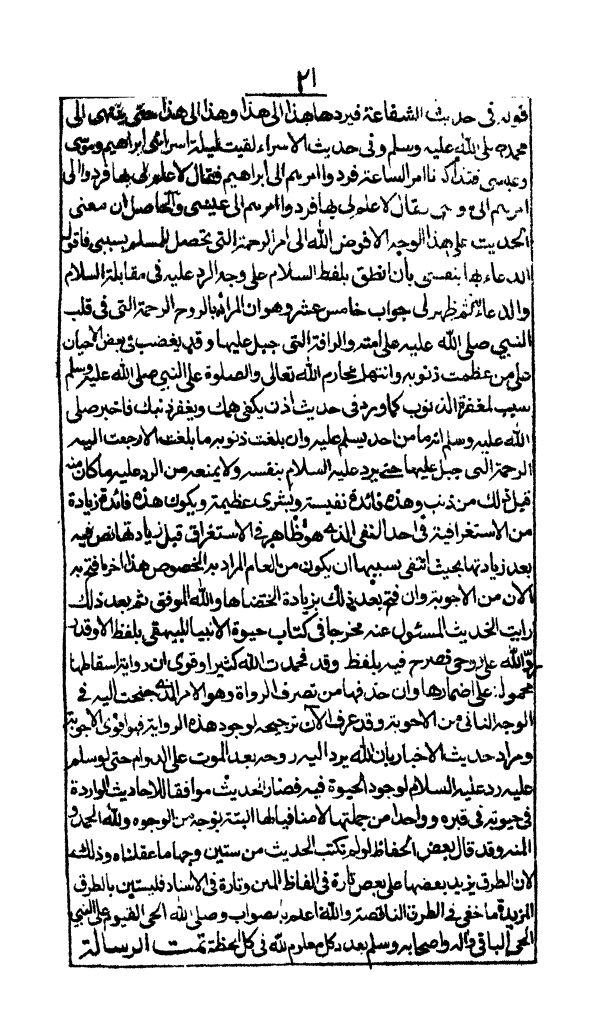 ٢١
قوله فى حديث الشفاعة فيردها هذا الى هذا وهذا الى هذا حتى ينتهى الى
محمد صلى الله عليه وسلم وفى حديث الاسراء لقيت ليلة اسرى بى ابراهيم وموسى
وعيسى فتذاكرنا امر الساعة فردوا امرهم الى ابراهيم فقال لا علم لى بها فردوا الى
امرهم الى موسى فقال لا علم لى بها فردوا امرهم الى عيسى والحاصل ان معنى
الحديث على هذا الوجه الا فوض الله الى امر الرحمة التى تحصل للمسلم بسببى فاتولى
الدعاء بها بنفسى بان انطق بلفظ السلام على وجه الرد عليه فى مقابلة السلام
والدعاء ثم ظهر لى جواب خامس عشر وهو ان المراد بالروح الرحمة التى فى قلب
النبى صلى الله عليه على امته والرافة التى جبل عليها وقد يغضب فى بعض الاحيان
على من عظمت ذنوبه وانتهك محارم الله تعالى والصلوة على النبى صلى الله عليه وسلم
سبب لمغفرة الذنوب كما ورد فى حديث اذن يكفى همك ويغفر ذنبك فاخبر صلى
الله عليه وسلم انه ما من احد يسلم عليه وان بلغت ذنوبه ما بلغت الا رجعت اليه
الرحمة التى جبل عليها حتى يرد عليه السلام بنفسه ولا يمنعه من الرد عليه ما كان منه
قبل ذلك من ذنب وهذه فائدة نفيسة وبشرى عظيمة ويكون هذه فائدة زيادة
من الاستغراقية فى احد النفى الذى هو ظاهر فى الاستغراق قبل زيادتها نص فيه
بعد زيادتها بحيث انتفى بسببها ان يكون من العام المراد به الخصوص هذا اخر ما فتح به
الآن من الاجوبة وان فتح بعد ذلك بزيادة الحقناها والله الموفق ثم بعد ذلك
رايت الحديث المسئول عنه مخرجا فى كتاب حيوة الانبيا للبيهقى بلفظ الا وقد
رد الله على روحى فصرح فيه بلفظ وقد فحمدت الله كثيرا وقوى ان رواية اسقاطها
محمولة على اضمارها وان حذفها من تصرف الرواة وهو الامر الذى جنحت اليه فى
الوجه الثانى من الاجوبة وقد عرف الآن ترجيحه لوجود هذه الرواية فهو اقوى الاجوبة
ومراد حديث الاخبار بان الله يرد اليه روحه بعد الموت على الدوام حتى لو سلم
عليه رد عليه السلام لوجود الحيوة فيه فصار الحديث موافقا للاحاديث الواردة
فى حيوته فى قبره وواحدا من جملتها لا منافيا لها البتة بوجه من الوجوه ولله الحمد و
المنه وقد قال بعض الحفاظ لو لم نكتب الحديث من ستين وجها ما عقلناه وذلك
لان الطرق يزيد بعضها على بعض تارة فى الفاظ المتن وتارة فى الاسناد فليستبين بالطرق
المزيدة ما خفى فى الطرق الناقصة والله اعلم بالصواب وصلى الله الحى القيوم على النبى
الحى الباقى واله واصحابه وسلم بعدد كل معلوم لله فى كل لحظة تمت الرسالة